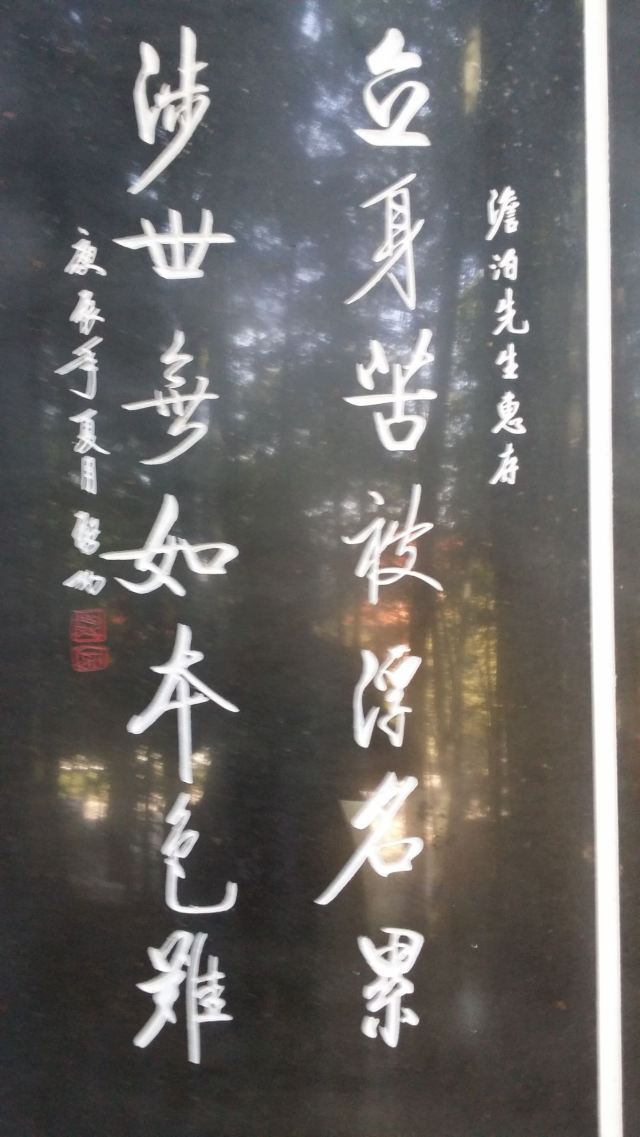 澹泊先生惠存
立身苦被浮名累
涉世無如本色難
庚辰年夏月 啓功